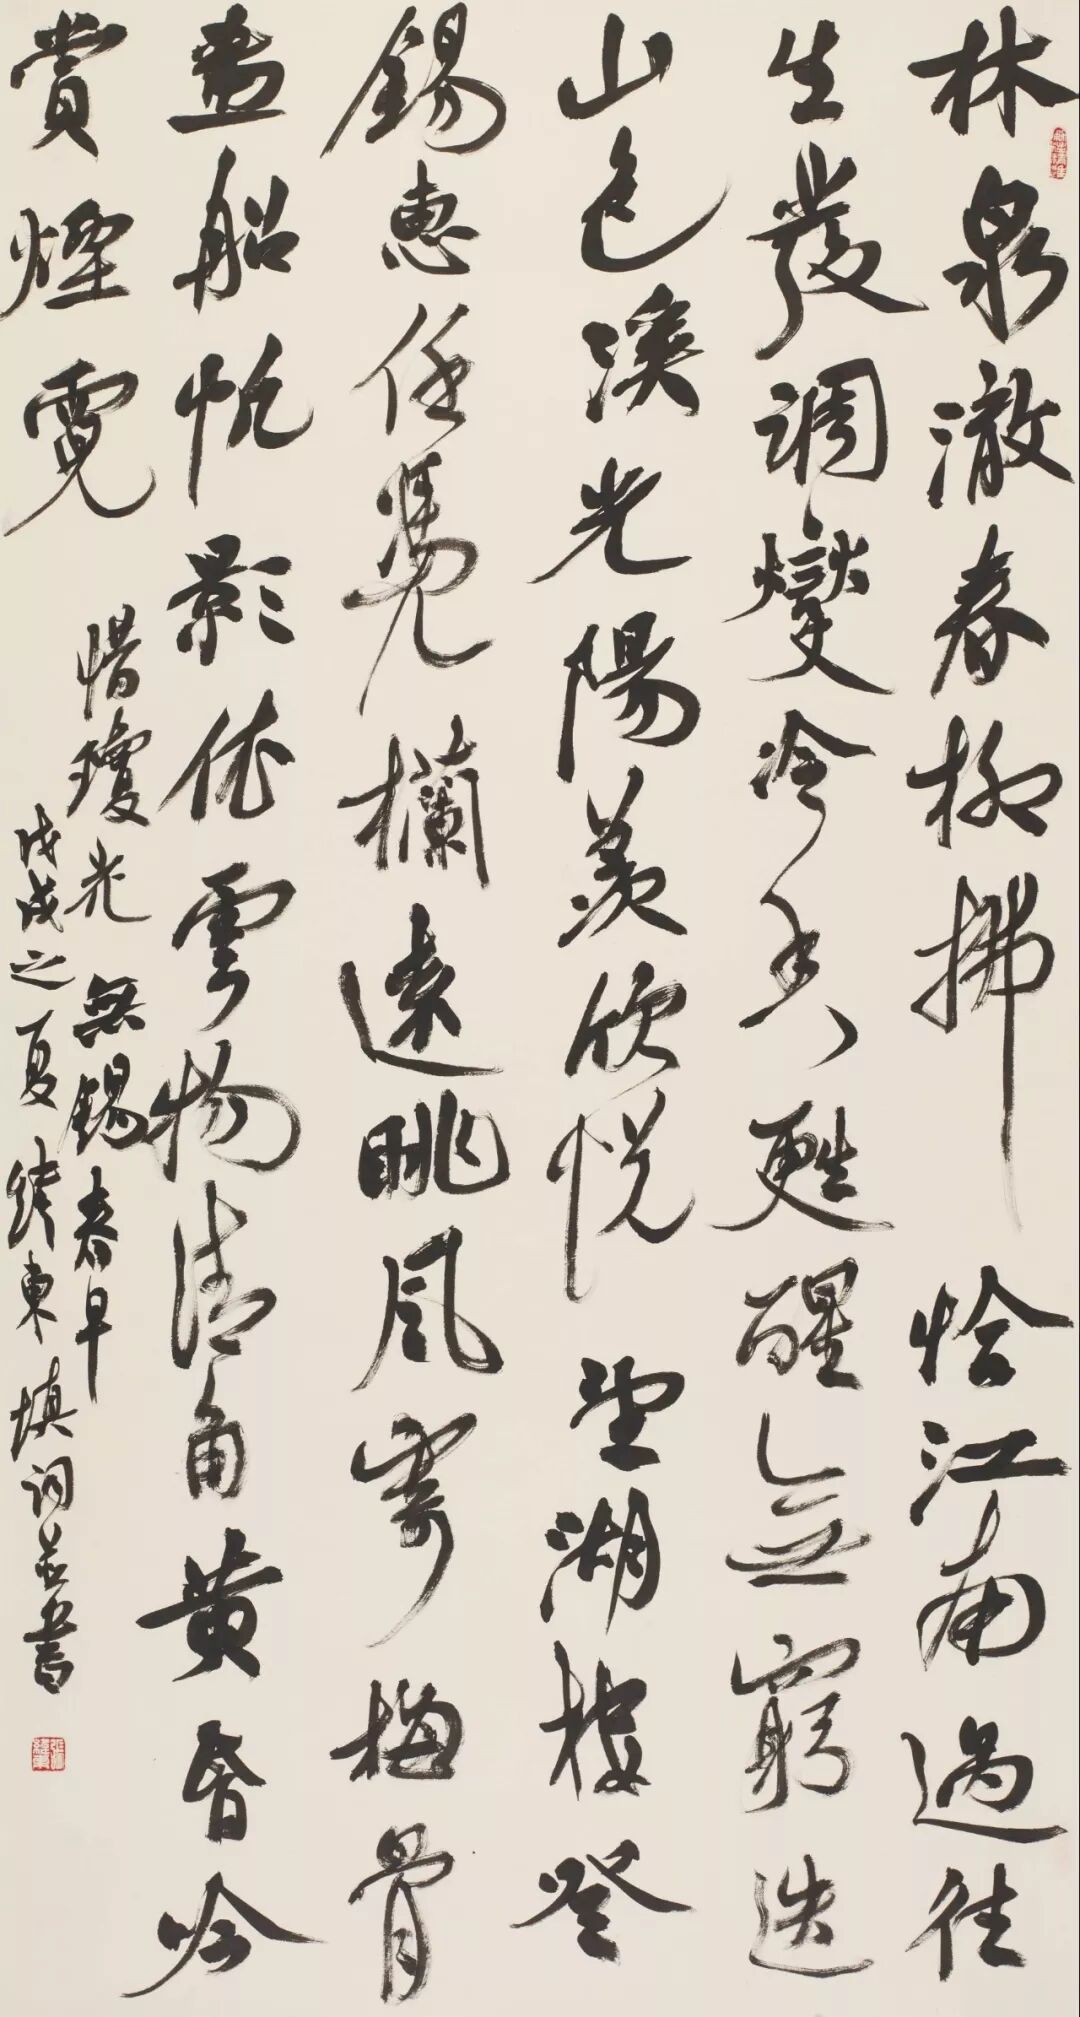 林泉澈春柳拂恰江南過往
生發調燮冷香甦醒無窮迭
山色溪光陽羨欣悅望湖樓登
錫惠任憑欄遠眺風寄梅骨
畫船帆影依雲物清角黃昏吟
賞煙霓
惜瓊光 無錫春早
戊戌之夏緯東填詞並書